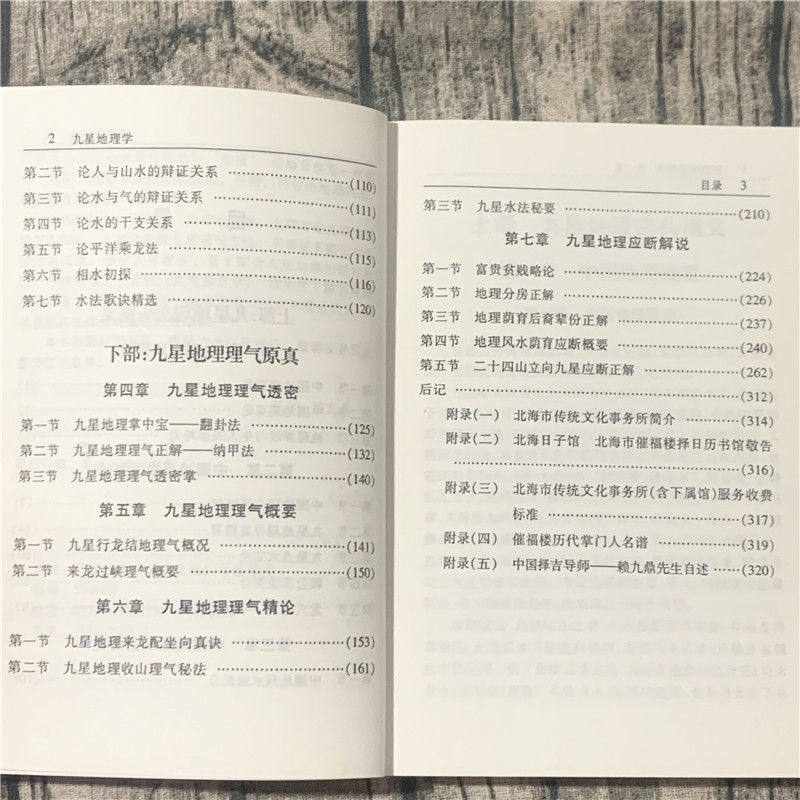 2 九星地理学
第二节 论人与山水的辩证关系 ……………………(110)
第三节 论水与气的辩证关系 ……………………(111)
第四节 论水的干支关系 ……………………(113)
第五节 论平洋乘龙法 ……………………(115)
第六节 相水初探 ……………………(116)
第七节 水法歌诀精选 ……………………(120)
下部:九星地理理气原真
第四章 九星地理理气透密
第一节 九星地理掌中宝——翻卦法 ……………………(125)
第二节 九星地理理气正解——纳甲法 ……………………(132)
第三节 九星地理理气透密掌 ……………………(140)
第五章 九星地理理气概要
第一节 九星行龙结地理气概况 ……………………(141)
第二节 来龙过峡理气概要 ……………………(150)
第六章 九星地理理气精论
第一节 九星地理来龙配坐向真诀 ……………………(153)
第二节 九星地理收山理气秘法 ……………………(161)
目录 3
第三节 九星水法秘要 ……………………(210)
第七章 九星地理应断解说
第一节 富贵贫贱略论 ……………………(224)
第二节 地理分房正解 ……………………(226)
第三节 地理荫育后裔辈份正解 ……………………(237)
第四节 地理风水荫育应断概要 ……………………(240)
第五节 二十四山立向九星应断正解 ……………………(262)
后记 ……………………(312)
附录(一) 北海市传统文化事务所简介 ……………………(314)
附录(二) 北海日子馆 北海市催福楼择日历书馆敬告
……………………(316)
附录(三) 北海市传统文化事务所(含下属馆)服务收费
标准 ……………………(317)
附录(四) 催福楼历代掌门人名谱 ……………………(319)
附录(五) 中国择吉导师——赖九鼎先生自述 ……………………(320)